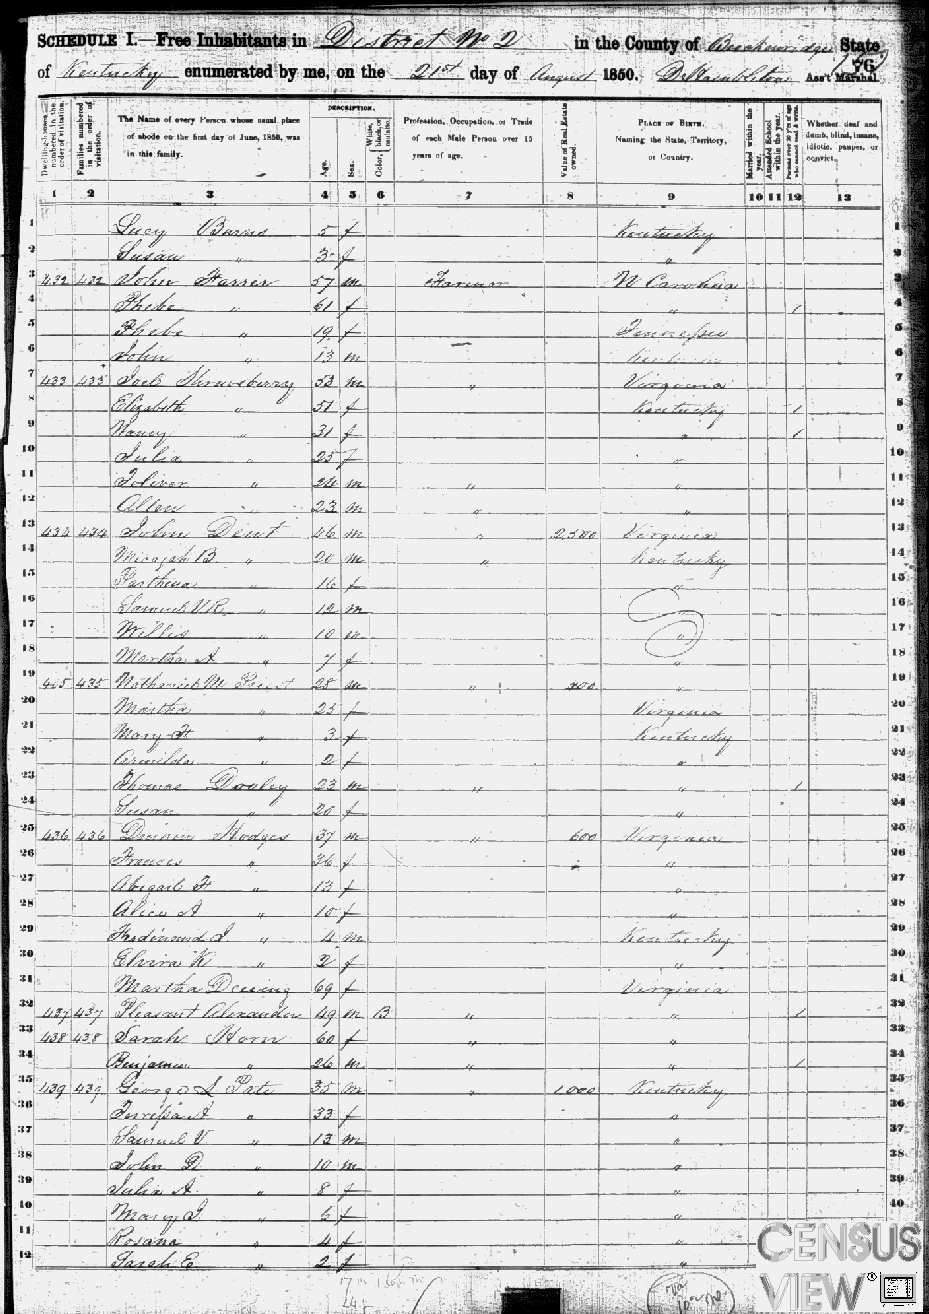 SCHEDULE I.—Free Inhabitants in District No 2 in the County of Breckenridge State
of Kentucky enumerated by me, on the 21st day of August 1850. Ass't Marshal.
76
DESCRIPTION.
Dwelling-houses numbered in the order of visitation.
Families numbered in the order of visitation.
The Name of every Person whose usual place of abode on the first day of June, 1850, was in this family.
Age.
Sex.
Color, White, black, or mulatto.
Profession, Occupation, or Trade of each Male Person over 15 years of age.
Value of Real Estate owned.
PLACE OF BIRTH, Naming the State, Territory, or Country.
Married within the year.
Attended School within the year.
Persons over 20 y'rs of age who cannot read & write.
Whether deaf and dumb, blind, insane, idiotic, pauper, or convict.
1 2 3 4 5 6 7 8 9 10 11 12 13
1 Lucy Barns 5 f Kentucky 1
2 Susan " 3 f " 2
3 432 432 John Farrer 57 m Farmer N Carolina 3
4 Phebe " 61 f " 1 4
5 Phebe " 19 f Tennessee 5
6 John " 13 m Kentucky 6
7 433 433 Joel Shrewsberry 53 m " Virginia 7
8 Elizabeth " 51 f Kentucky 1 8
9 Nancy " 31 f " 1 9
10 Julia " 25 f " 10
11 Toliver " 24 m " " 11
12 Allen " 23 m " " 12
13 434 434 John Dent 46 m " 2,500 Virginia 13
14 Micajah B " 20 m " Kentucky 14
15 Parthena " 16 f " 15
16 Samuel " 12 m 16
17 Willis " 10 m " 17
18 Martha A " 7 f " 18
19 435 435 Nathaniel M 28 m " " 19
20 Martha " 25 f Virginia 20
21 Mary " 3 f Kentucky 21
22 Armilda " 2 f " 22
23 Thomas Dooley 23 m " " 1 23
24 Susan " 20 f " 24
25 436 436 Hodges 37 m " 600 Virginia 25
26 Frances " 36 f " 26
27 Abigail F " 13 f " 27
28 Alice A " 10 f " 28
29 Ferdinand J. " 4 m Kentucky 29
30 Elvira K " 2 f " 30
31 Martha 69 f Virginia 31
32 437 437 Pleasant Alexander 49 m B " " 1 32
33 438 438 Sarah Horn 60 f " " 33
34 Benjamin " 26 m " " 1 34
35 439 439 George L Pate 35 m " 1000 Kentucky 35
36 A " 33 f " 36
37 Samuel V " 13 m " 37
38 John D. " 10 m " 38
39 Julia A. " 8 f " 39
40 Mary J. " 6 f " 40
11 Rosana " 4 f " 11
12 Sarah E " 2 f "
CENSUS
VIEW®